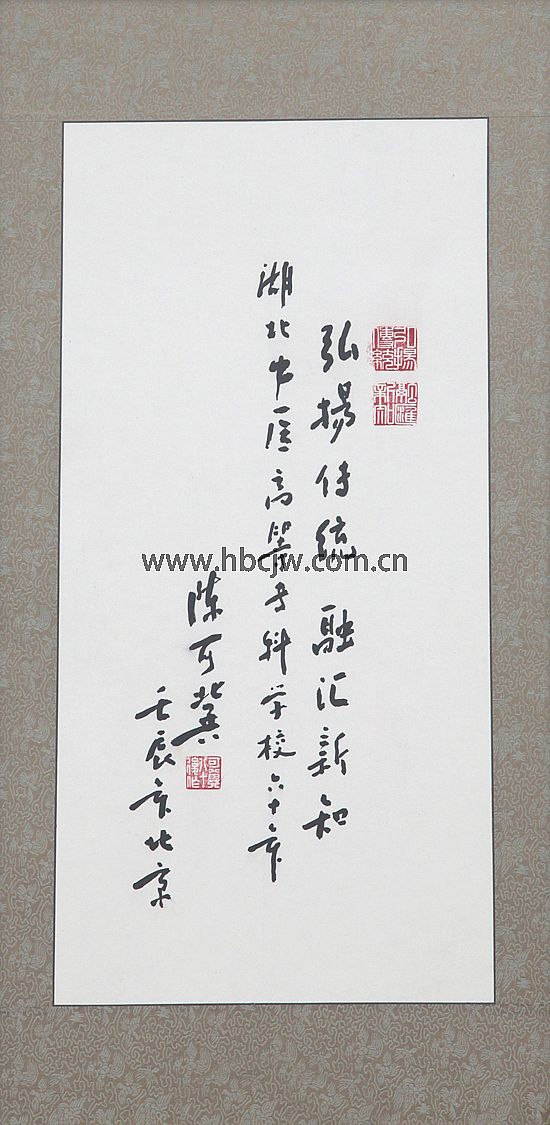 弘揚傳統
融匯新知
弘揚传统 融汇新知
湖北中医高等专科学校六十年
陈可冀
壬辰年北京
www.hbcjw.com.cn